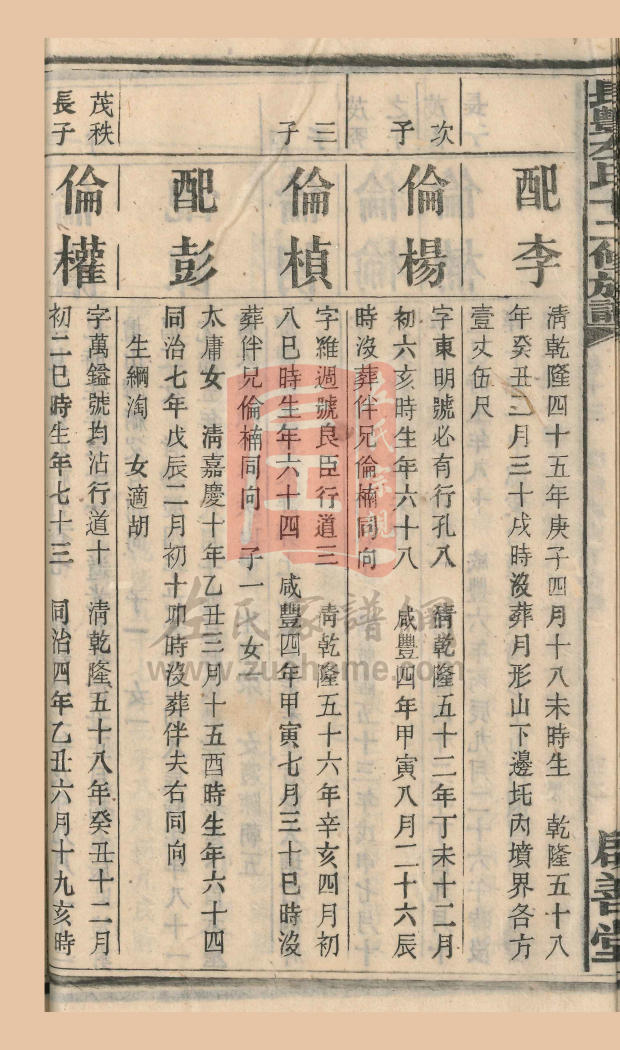 長豐左氏十二修族譜
啟善堂
配李
清乾隆四十五年庚子四月十八未時生 乾隆五十八
年癸丑二月三十戌時沒葬月形山下邊圫內墳界各方
壹丈伍尺
次子
倫楊
字東明號必有行孔八 清乾隆五十二年丁未十二月
初六亥時生年六十八 咸豐四年甲寅八月二十六辰
時沒葬伴兄倫楠同向
三子
倫楨
字維週號良臣行道三 清乾隆五十六年辛亥四月初
八巳時生年六十四 咸豐四年甲寅七月三十巳時沒
葬伴兄倫楠同向 子一 女一
配彭
太庸女 清嘉慶十年乙丑三月十五酉時生年六十四
同治七年戊辰二月初十卯時沒葬伴夫右同向
生綱淘 女適胡
茂秩長子
倫權
字萬鎰號均沾行道十 清乾隆五十八年癸丑十二月
初二巳時生年七十三 同治四年乙丑六月十九亥時
左氏宗親
左氏家譜網
www.zuohome.com